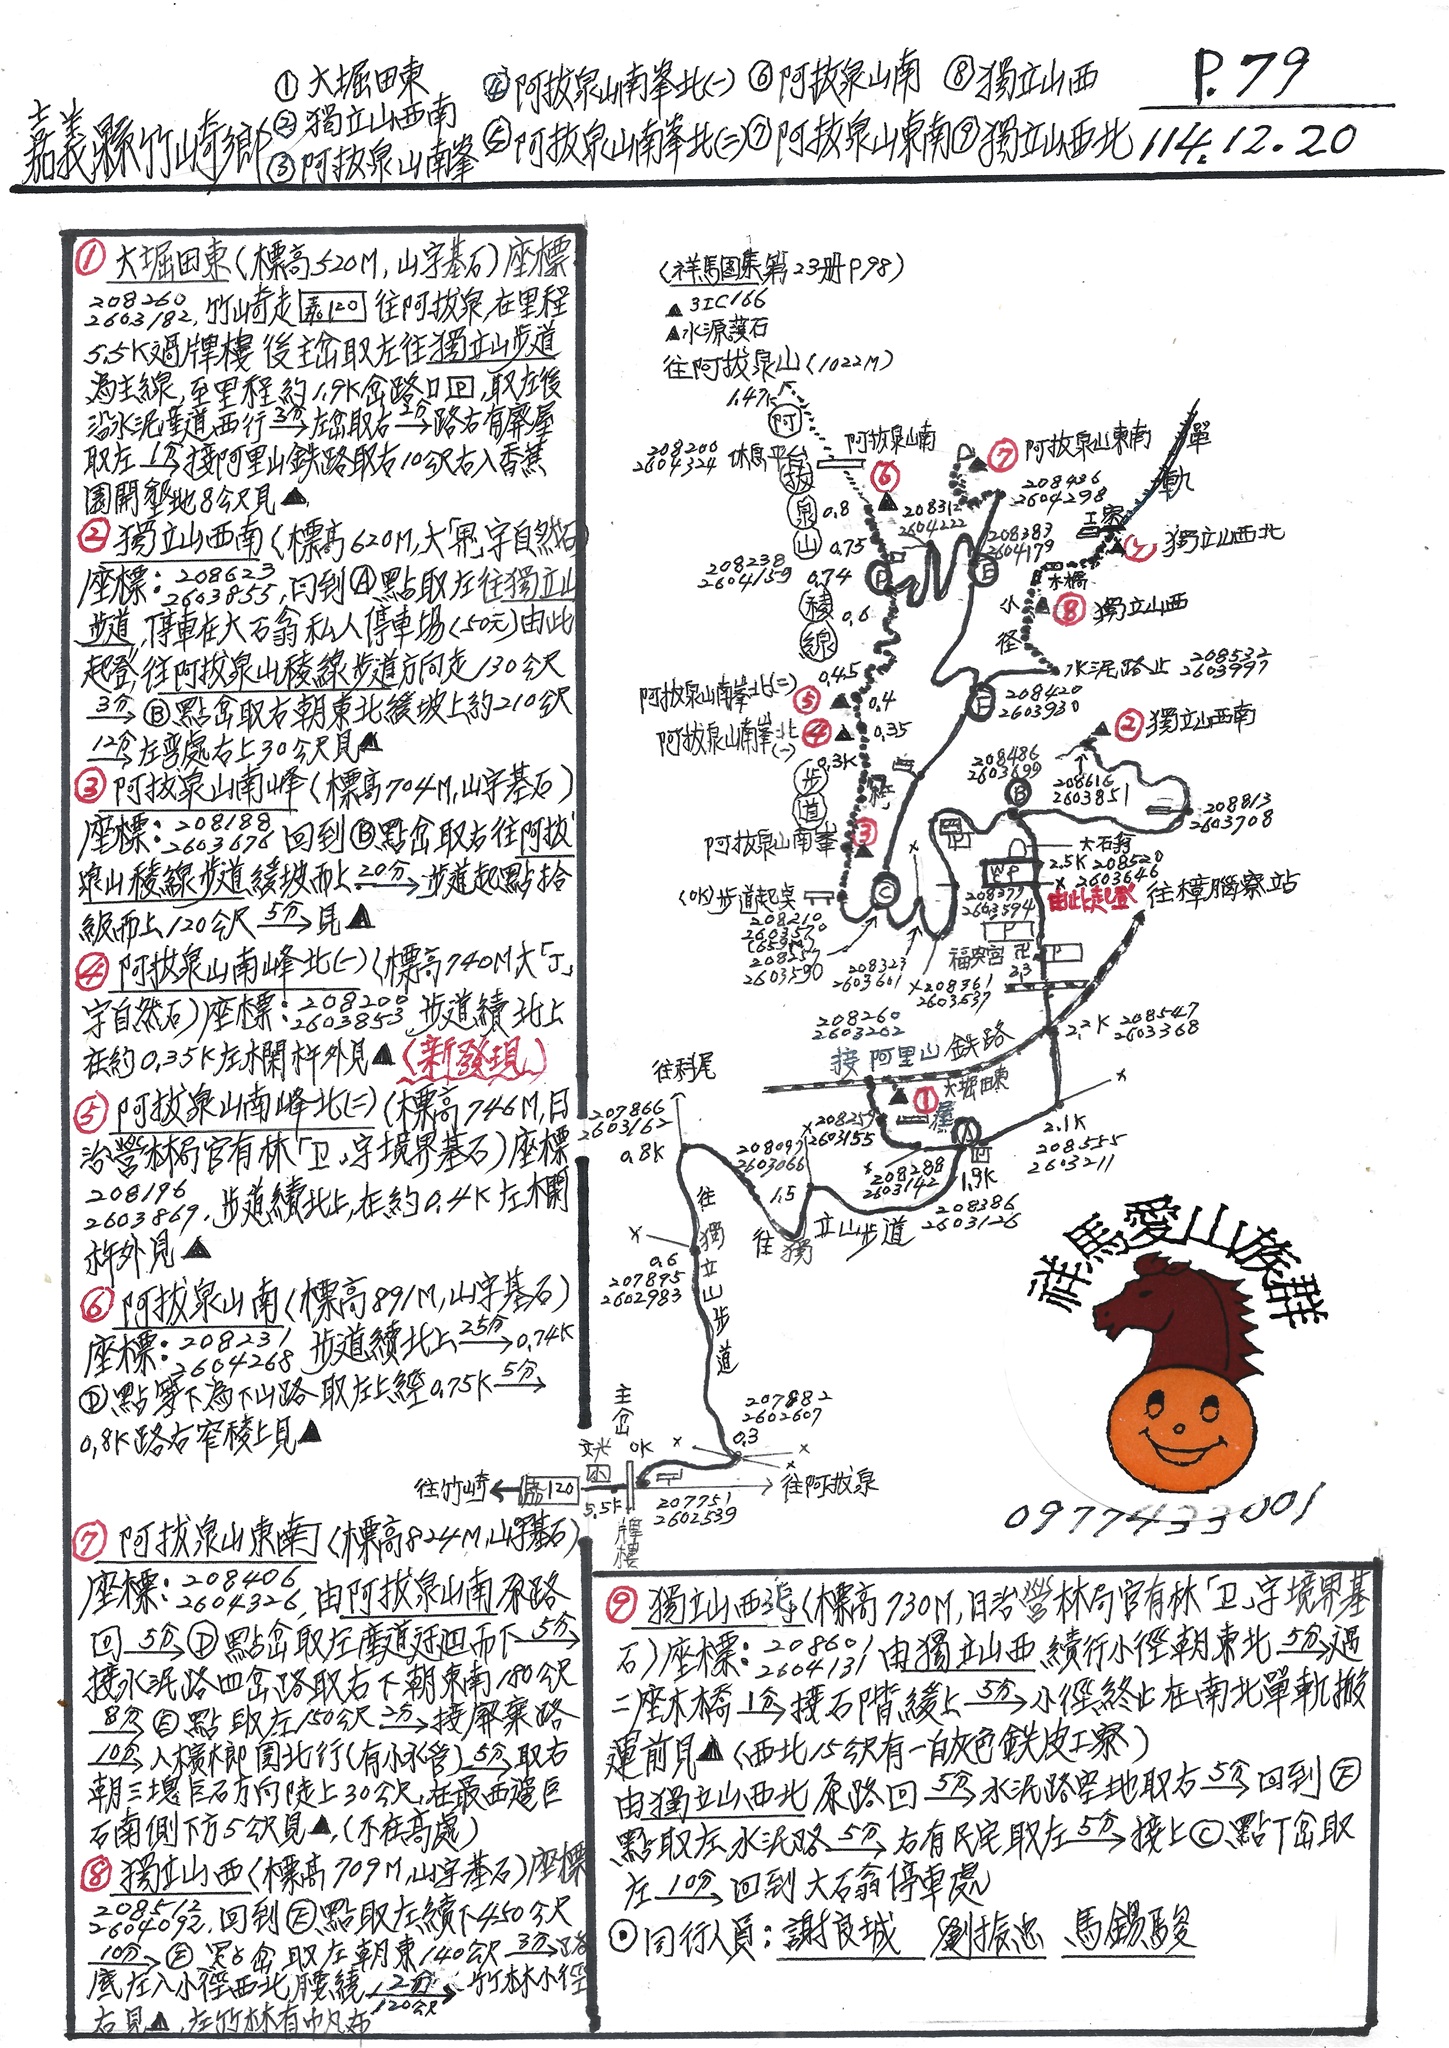 嘉義縣竹崎鄉
①大堀田東
②獨立山西南
③阿拔泉山南峯
④阿拔泉山南峯北(一)
⑤阿拔泉山南峯北(二)
⑥阿拔泉山南
⑦阿拔泉山東南
⑧獨立山西
⑨獨立山西北
P.79
114.12.20
①大堀田東(標高520M,山字基石)座標
208260
2603182,竹崎走嘉120往阿拔泉,在里程
5.5K過牌樓後主岔取左往獨立山步道
為主線,至里程約1.9K岔路口回,取左後
沿水泥產道西行3分→左岔取右2分→路右有廢屋
取左1分→接阿里山鉄路取右10公尺右入香蕉
園開墾地8公尺見▲
②獨立山西南(標高620M,大「完」字自然石)
座標:208623
2603855,回到Ⓐ點取左往獨立山
步道,停車在大石翁私人停車場(50元)由此
起登,往阿拔泉山稜線步道方向走130公尺
3分→Ⓑ點岔取右朝東北緩坡上約210公尺
12分左彎處右上30公尺見▲
③阿拔泉山南峰(標高704M,山字基石)
座標:208188
2603676回到Ⓑ點岔取右往阿拔
泉山稜線步道緩坡而上20分→步道起點拾
級而上120公尺5分→見▲
④阿拔泉山南峰北(一)(標高740M大「J」
字自然石)座標:208200
2603853,步道續北上
在約0.35K左欄杆外見▲(新發現)
⑤阿拔泉山南峰北(二)(標高746M,日
治營林局官有林「卫」字境界基石)座標
208196
2603869,步道續北上,在約0.4K左欄
杆外見▲
⑥阿拔泉山南(標高891M,山字基石)
座標:208231
2604268步道續北上25分→0.74K
Ⓓ點寧下為下山路取左上經0.75K5分→
0.8K路右窄稜上見▲
⑦阿拔泉山東南(標高824M,山字基石)
座標:208406
2604326,由阿拔泉山南原路
回5分→Ⓓ點岔取左產道迂迴而下5分→
接水泥路四岔路取右下朝東南180公尺
8分→Ⓔ點取左150公尺2分→接廢棄路
10分→入檳榔園北行(有小水管)5分→取右
朝三塊巨石方向陡上30公尺,在最西邊巨
石南側下方5公尺見▲,(不在高處)
⑧獨立山西(標高709M,山字基石)座標
208512
2604092,回到Ⓔ點取左續下450公尺
10分→Ⓕ點岔取左朝東140公尺3分→路
底左入小徑西北腰繞12分→120公尺竹林小徑
右見▲,左竹林有帆布
(祥馬圖集第23册P98)
▲3IC166
▲水源護石
往阿拔泉山(1022M)
1.47K
阿拔泉山稜線步道
208200
2604324休息平台
阿拔泉山南
⑥
⑦阿拔泉山東南
208436
2604298
單軌
工寮
⑨獨立山西北
木橋
⑧獨立山西
小徑
0.8
208312
2604222
208383
2604179
0.75
208238
2604159
0.74
0.6
水泥路止
208532
2603997
0.45
阿拔泉山南峯北(二)⑤
0.4
208420
2603930
阿拔泉山南峯北(一)④
0.35
0.3K
②獨立山西南
208486
2603699
208616
2603851
208813
2603708
大石翁
2.5K 208520
2603646
由此起登
往樟腦寮站
阿拔泉山南峯③
(0K)步道起点
208210
2603570
(659M)
208257
2603590
208323
2603601
208361
2603637
208377
2603594
P
福興宮卍
P
2.3
208260
2603202
接阿里山鉄路
2.2K 208547
2603368
往科尾
207866
2603162
0.8K
①大堀田東
屋
208259
2603155
208097
2603066
1.5
208288
2603142
1.9K
208386
2603126
2.1K
208555
2603211
往獨立山步道
往獨立山步道
0.6
207895
2602983
207882
2602607
0.3
主岔
文光
小
0K
往竹崎
嘉120
5.5K
牌樓
207751
2602539
往阿拔泉
祥馬愛山族群
0977433001
⑨獨立山西北(標高730M,日治營林局官有林「卫」字境界基
石)座標:208601
2604131由獨立山西續行小徑朝東北5分→過
二座木橋1分→接石階緩上5分→小徑終止在南北單軌搬
運前見▲(西北15公尺有一白灰色鉄皮工寮)
由獨立山西北原路回5分→水泥路空地取右5分→回到Ⓕ
點取左水泥路5分→右有民宅取左5分→接上Ⓒ點丁岔取
左10分→回到大石翁停車處
⊙同行人員:謝良城 劉振忠 馬錫駿